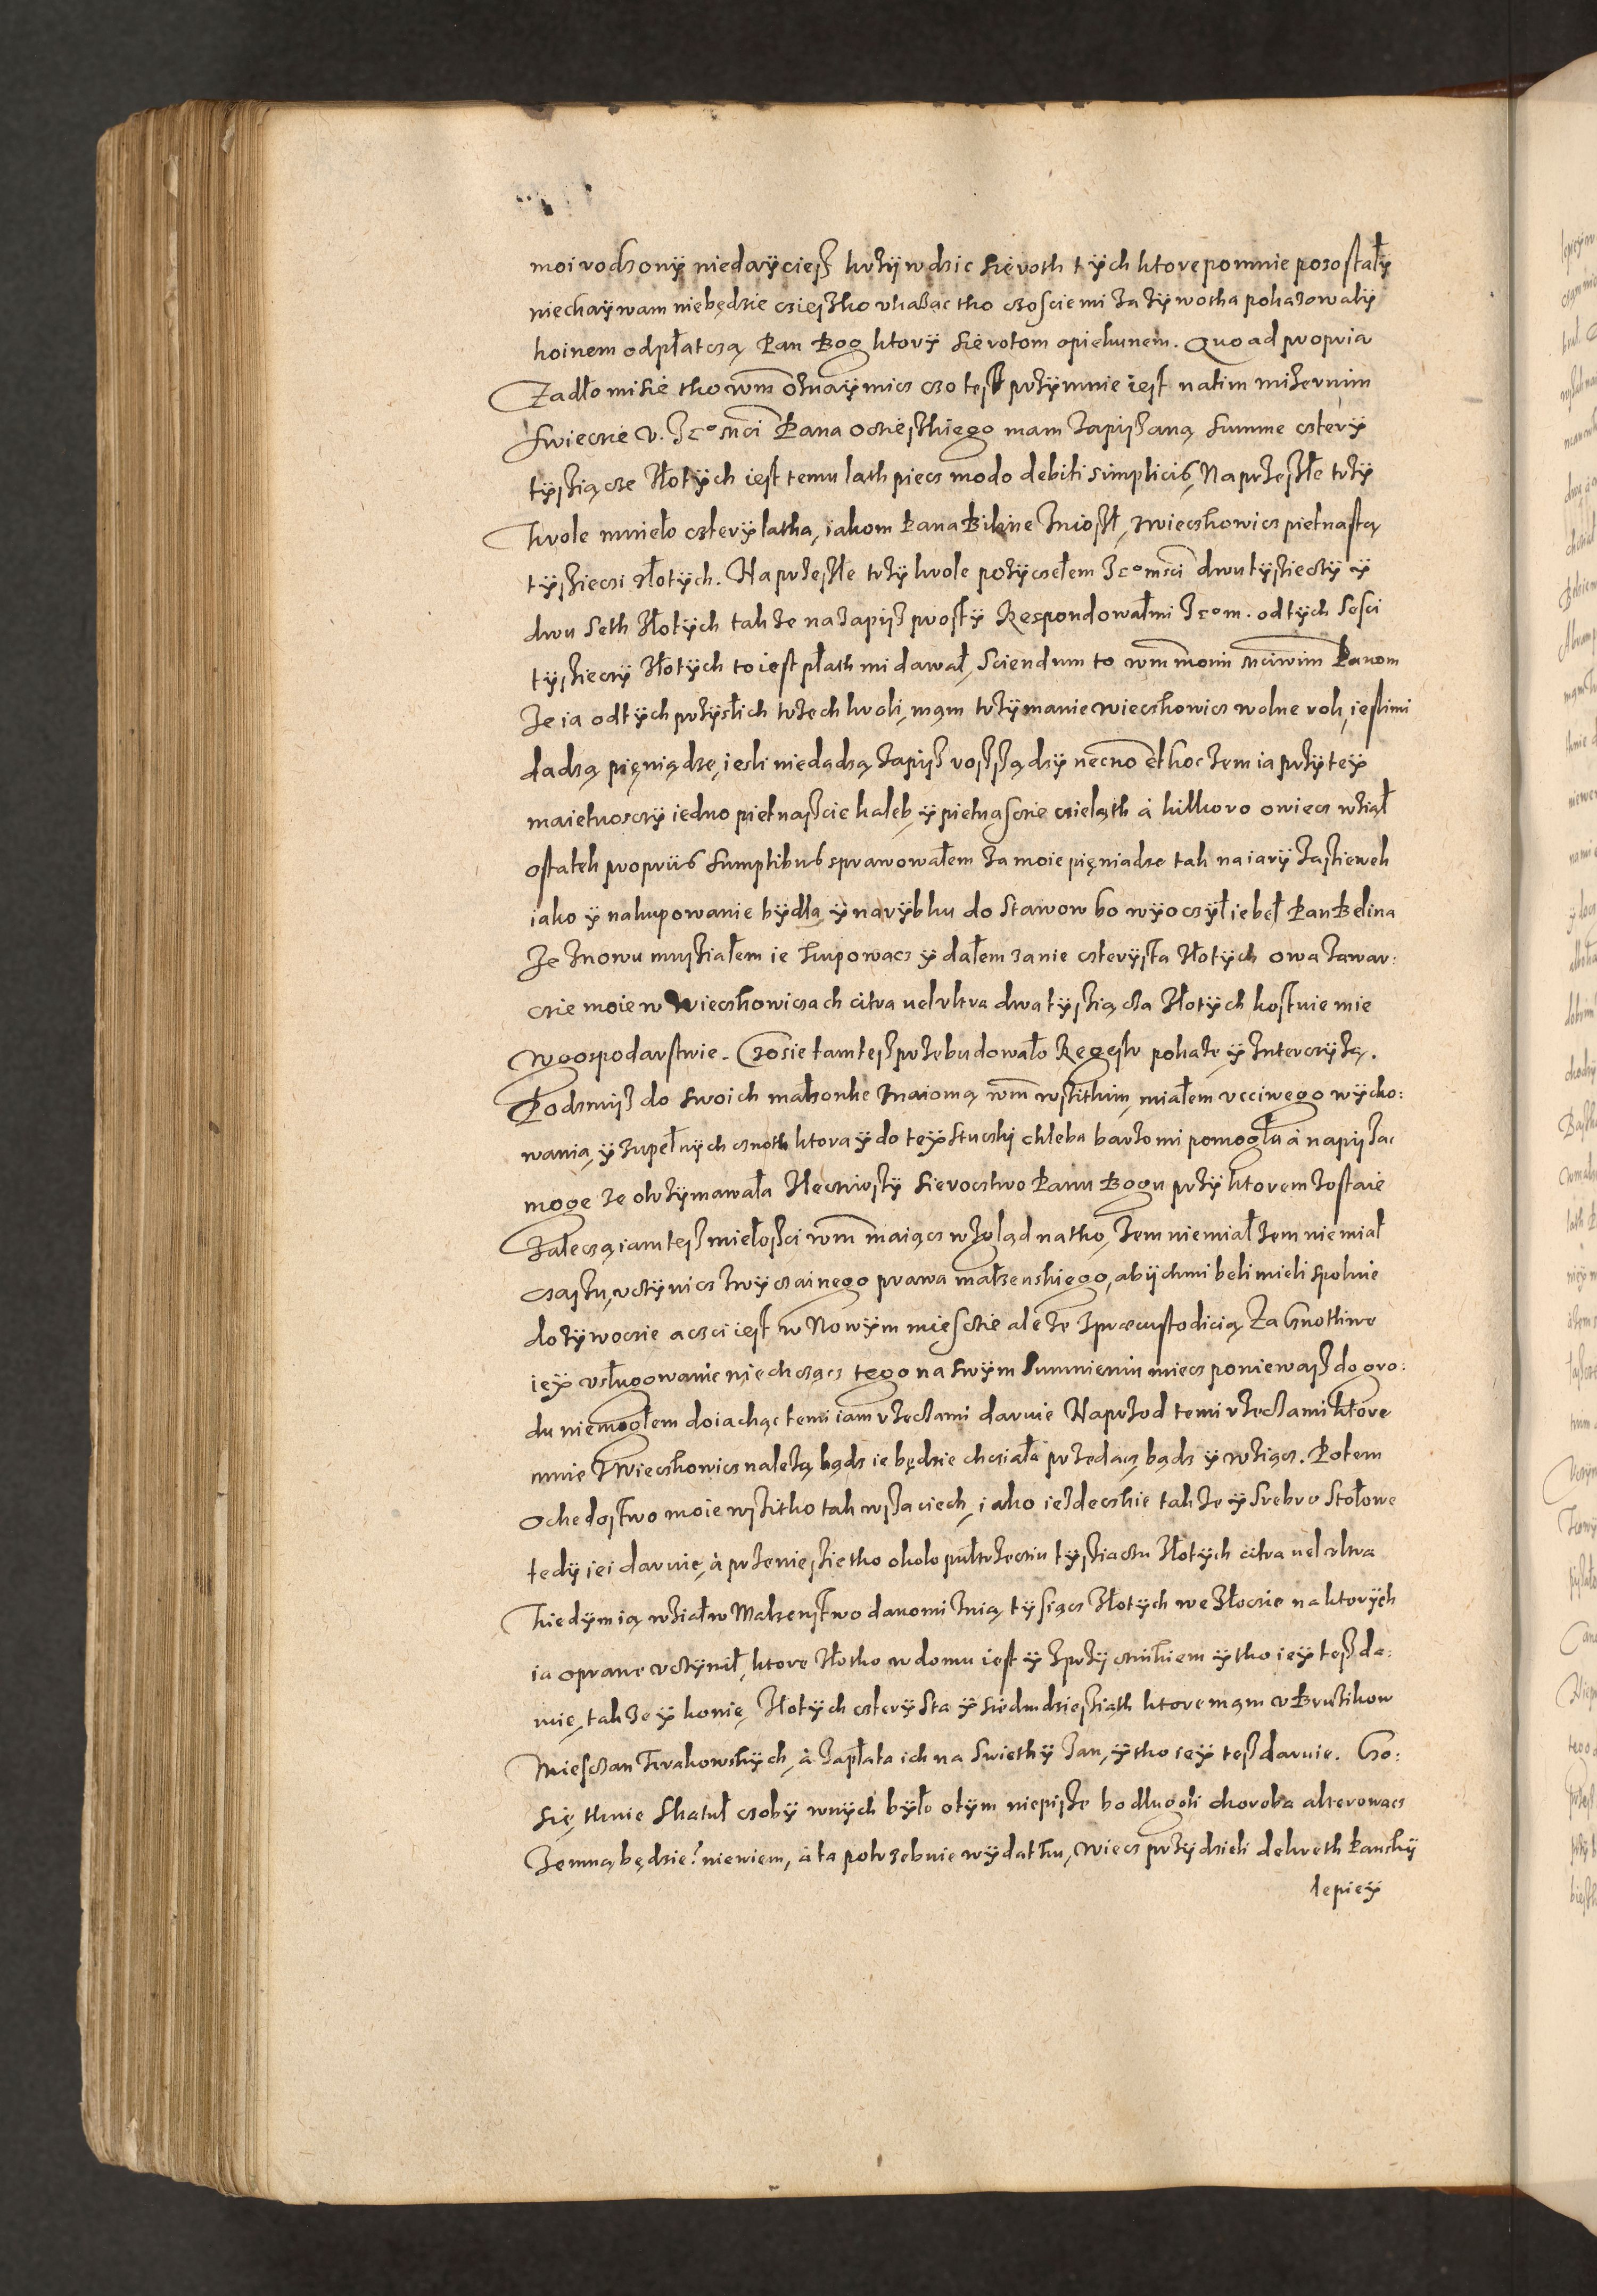 moi rodzony niedayciesz krzywdzic sieroth tych ktore pomnie pozostały
niechay wam niebędzie cziężko ukazac tho czosciemi za żywotha pokazowaly
hoinem odpłatczą Pan Bog ktory sierotom opiekunem. Quo ad propria
Zadło misie tho wm oznaymicz czo tesz przymnie iest natim mizernim
swieczie v. Jeº Mci Pana Oczieskiego mam zapiszaną summe cztery
tysziącze złotych iest temu lath piecz modo debiti simplicis, Na przeszłe trzy
krole mineło cztery latha, iakom Pana Biline zniosł, z Wieczkowicz pietnastą
tyszieczi złotych. Na przeszłe trzy krole pożyczełem Jeº Mści dwu tyszięczy y
dwu seth złotych takze na zapisz prosty Respondowałmi Jeº m. od tych sesci
tysziecy złotych to iest płath mi dawał, Sciendum to wm moim Mciwim Panom
ze ia od tych przyslich trzech kroli, mąm trzymanie Wieczkowicz wolne rok, ieslimi
dadzą pięniądze, iesli niedądzą zapisz rossządzy necno et hoc żem ia przytey
maietnosczy iedno pietnaszcie kaleb, y pietnasczie czieląth à kilkoro owiecz wziął
ostatek propriis sumptibus sprawowałem za moie pięniadze tak na iarÿ zasziewek
iako y nakupowanie bydła y narybku do Stawow bo wyoczył ie beł Pan Belina
ze znowu musziałem ie kupowacz y dałem zanie czterysta złotych owa zawar:
czie moie w Wieczkowiczach citra vel ultra dwa tysziącza złotych kostuie mie
w gospodarstwie. Czosie tam tesz przebudowało Regestr pokaże y Interczyzą.
Podzmysz do swoich małzonke znaiomą wm wszitkim, miałem ucciwego wycho:
wania, y zupełnych cznoth ktora y do tey stuczky chleba barzo mi pomogła à napiszac
moge ze otrzymawała sieroctwo Panu Bogu przy ktorem zostaie
zaleczą iam tesz miełosci wm maiącz wzgląd na tho, żem niemiał żem nie miał
czaszu, uczynicz zwyczainego prawa małzenskiego, abychmi beli mieli spolnie
dożywoczie aczci iest w Nowym miesczie ale ze Zpraecustodicią Za cnotliwe
iey usługowanie niechcząc tego na swym sumnieniu miecz poniewasz do gro:
du niemogłem doiachac temi iam rzeczami daruie Naprzod temi rzeczami ktore
mnie z Wieczkowicz należą bądz ie będzie chciała przedacz, bądz y wziącz. Potem
Ochedostwo moie wszitko tak w szaciech, iako iezdeczkie takze y Srebro Stołowe
tedy iei daruię, à przeniesietho około pułtrzecziu tysziaczu złotych citra vel ultra
kiedym ią wział w Małzenstwo danomi znią tysiącz złotych we złoczie na ktorych
ia oprawe uczynił, ktore złotho w domu iest y zprzyczinkiem y tho iey tesz da:
ruię, takze y konię, złotych czterysta y siedmdziesziąth ktore mąm v Bruzikow
Mieszczan Krakowskych, à zapłata ich na swiethy Jan, y tho iey tesz daruie. Co:
się, tknie skatuł czoby wnych było o tym niepiszę bo długoli choroba alterowacz
zemną będzie? niewiem, à ta potrzebuie wydatku, wiecz przydzieli dekreth Panskÿ
lepiey